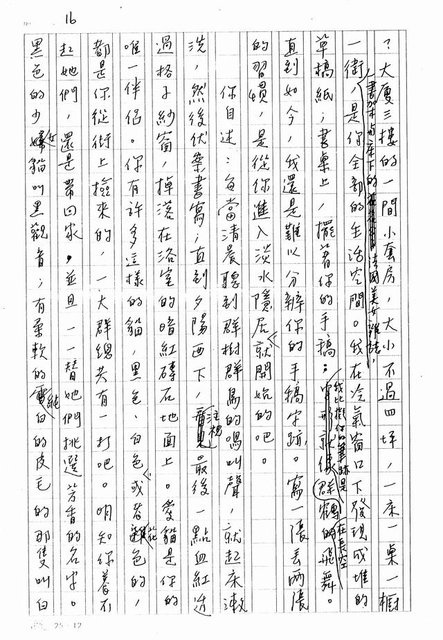 16
？大廈三樓的一間小套房，大小不過四坪，一床一桌一櫥
一街，是你全部的生活空間。我在冷氣窗口下發現成堆的
草稿紙；書桌上，擺著你的手稿；我比擬你的筆跡是群鶴在長空的飛舞。
直到如今，我還是難以分辨你的手稿字跡。寫一張丟兩張
的習慣，是從你進入淡水隱居就開始的吧。
你自述：每當清晨聽到群樹群鳥的鳴叫聲，就起床漱
洗，然後伏案書寫；直到夕陽西下，注視最後一點血紅近
過格子紗窗，掉落在浴室的暗紅磚石地面上。愛貓是你的
唯一伴侶。你有許多這樣的貓，黑色、白色或者花色的，
都是你從街上撿來的，一大群總共有一打吧。明知你養不
起她們，還是要回家，並且一一替她們挑選芳香的名字。
黑色的少女貓叫黑觀音；有柔軟的純白的皮毛的那隻叫白